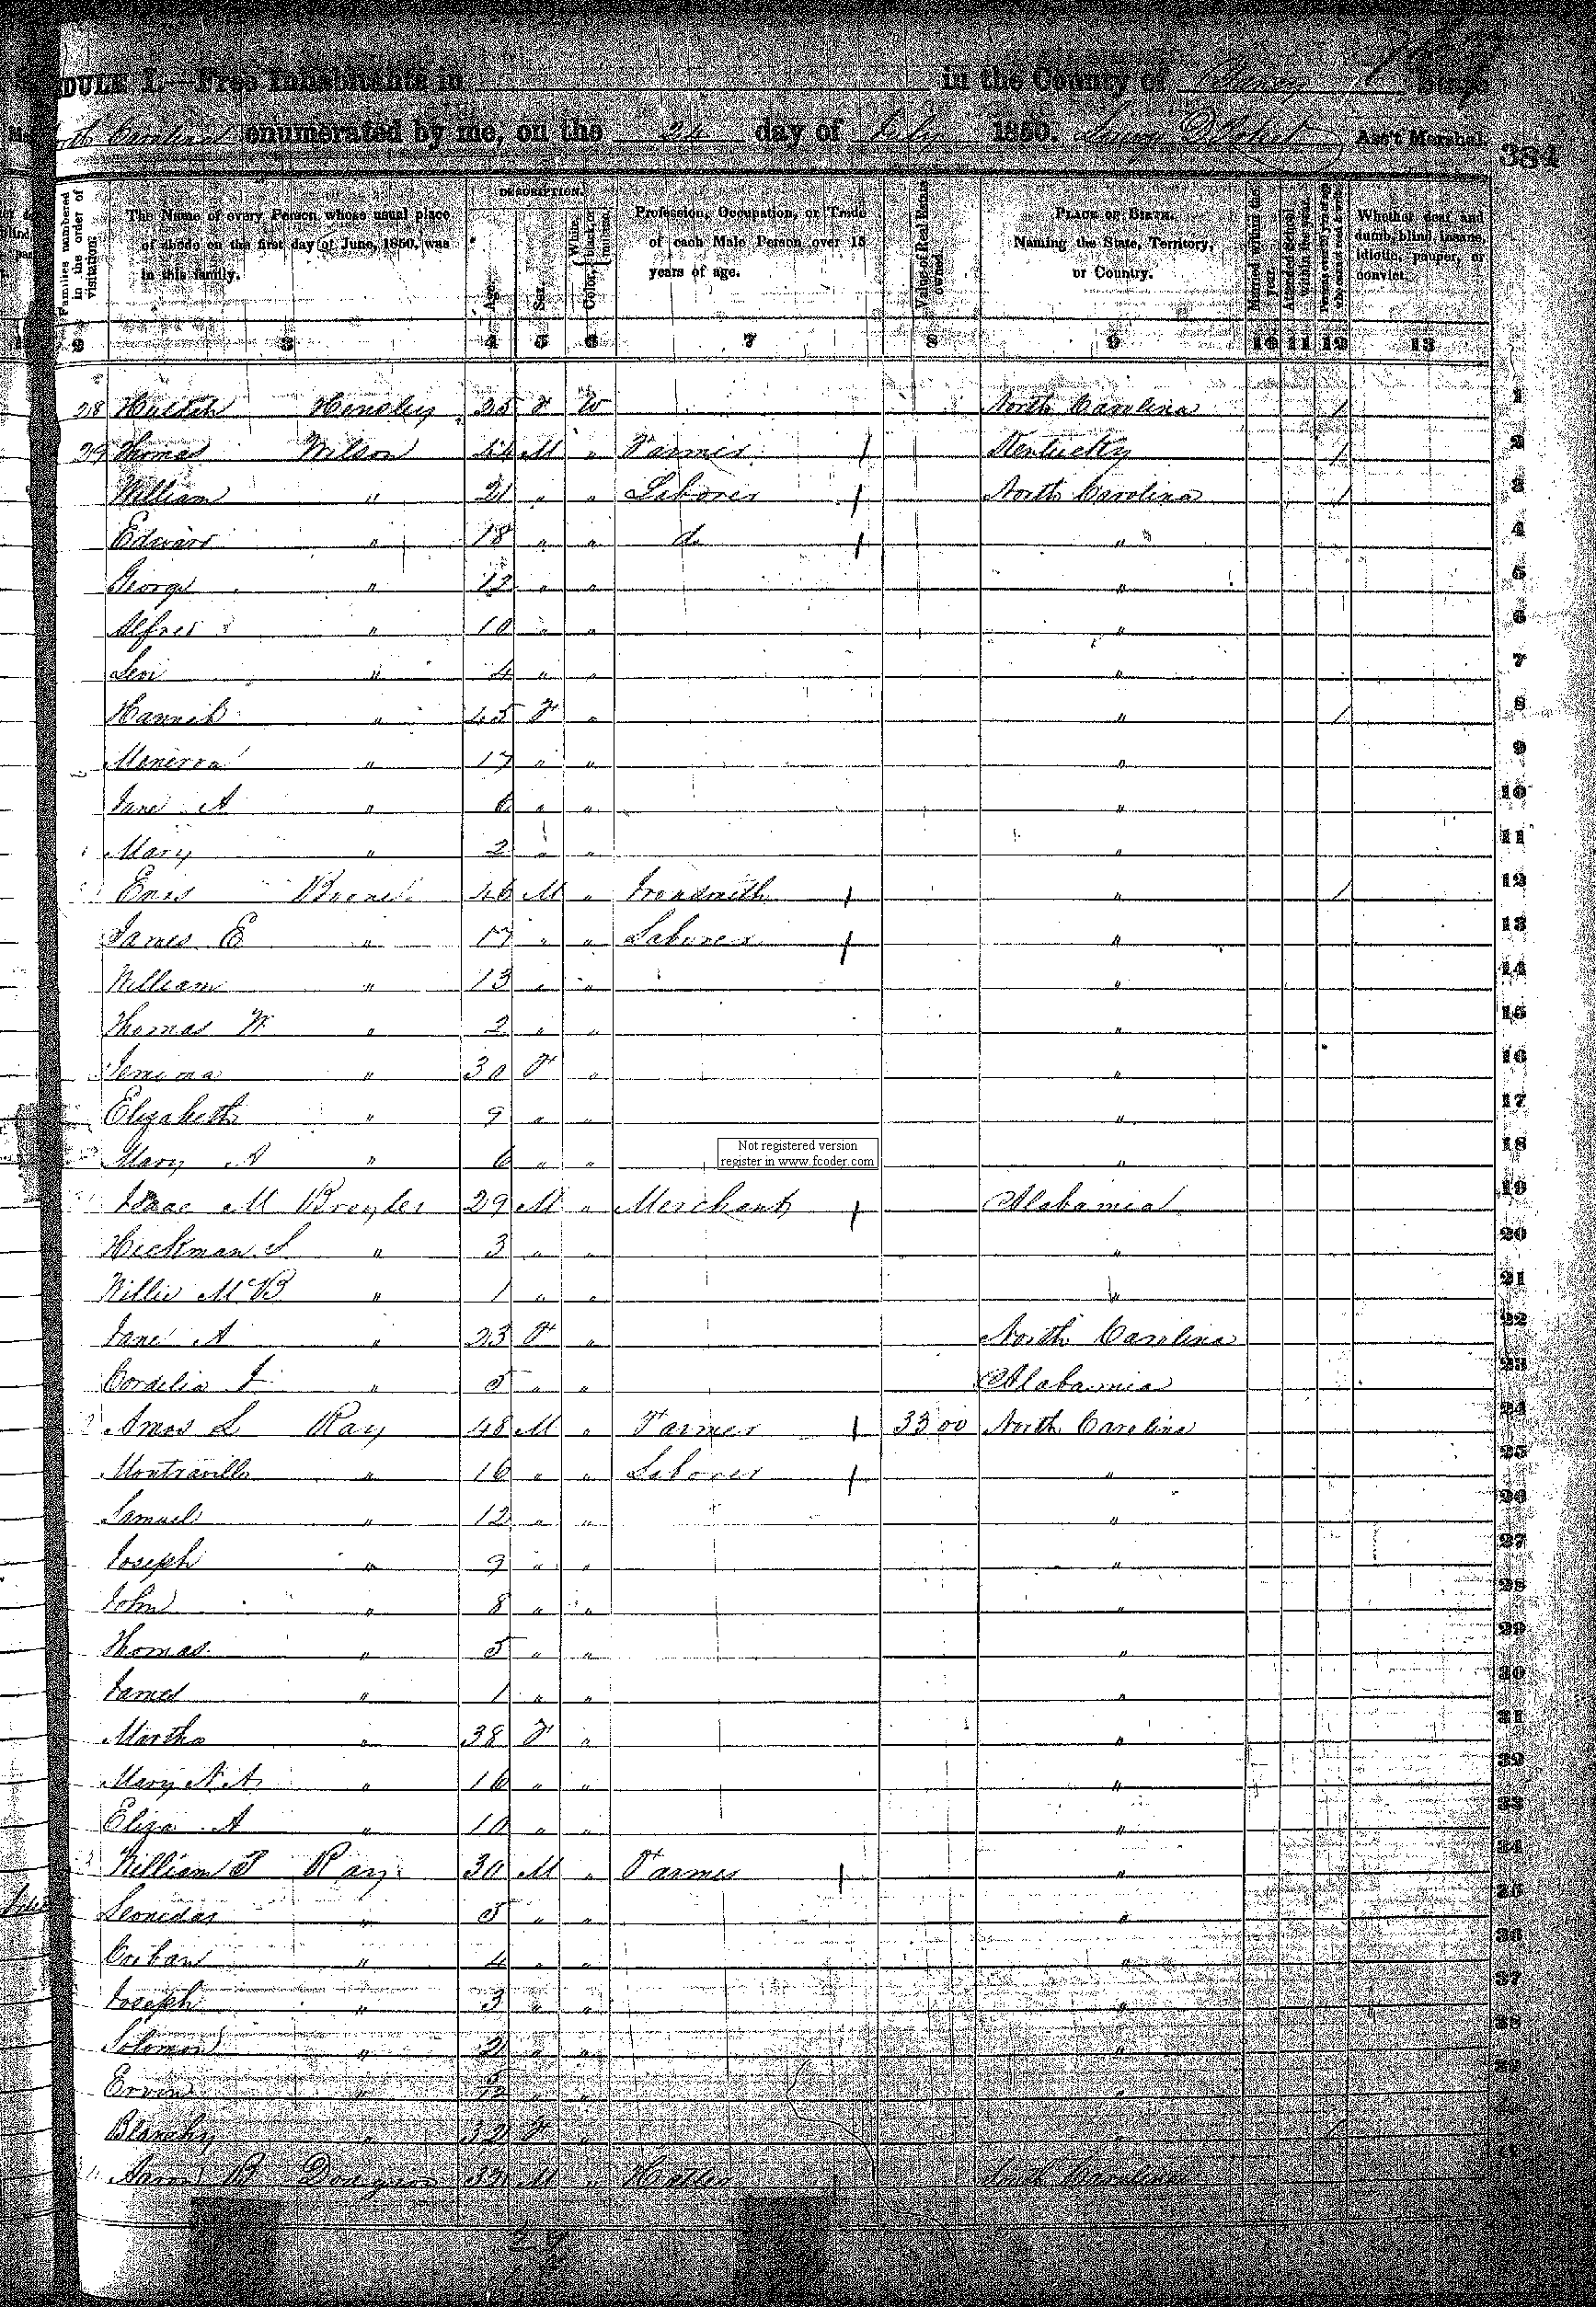 DULE I.—Free Inhabitants in in the County of Yancey State
North Carolina enumerated by me, on the 24 day of 1850. Ass't Marshal.
384
Families numbered in the order of visitation.
The Name of every Person whose usual place of abode on the first day of June, 1850, was in this family.
DESCRIPTION.
Age.
Sex.
Color, { White, black, or mulatto.
Profession, Occupation, or Trade of each Male Person over 15 years of age.
Value of Real Estate owned.
PLACE OF BIRTH. Naming the State, Territory, or Country.
Married within the year.
Attended School within the year.
Persons over 20 y'rs of age who cannot read & write.
Whether deaf and dumb, blind, insane, idiotic, pauper, or convict.
2 3 4 5 6 7 8 9 10 11 12 13
28 Hensley 25 F W North Carolina 1 1
29 Thomas Wilson 44 M " Farmer Kentucky 1 2
William " 21 " " Laborer North Carolina 1 3
Edward " 18 " " do " 4
George " 12 " " " 5
Alfred " 10 " " " 6
Levi " 4 " " " 7
Hannah " 45 F " " 1 8
Minerva " 17 " " " 9
Jane A " 6 " " " 10
Mary " 2 " " " 11
Enos 46 M " " 1 12
James E " 17 " " Laborer " 13
William " 13 " " " 14
Thomas W " 2 " " " 15
Jemima " 30 F " " 16
Elizabeth " 9 " " " 17
Mary A " 6 " " " 18
Not registered version
register in www.fcoder.com
Isaac M Broyles 29 M " Merchant Alabama 19
Hickman S " 3 " " " 20
Willie McB " 1 " " " 21
Jane A " 23 F " North Carolina 22
Cordelia " 5 " " Alabama 23
Amos L Ray 48 M " Farmer 3300 North Carolina 24
Montraville " 16 " " Laborer " 25
Samuel " 12 " " " 26
Joseph " 9 " " " 27
John " 8 " " " 28
Thomas " 5 " " " 29
James " 1 " " " 30
Martha " 38 F " " 31
Mary N. A. " 16 " " " 32
Eliza A " 10 " " " 33
William P Ray 30 M " Farmer " 34
Leonidas " 5 " " " 35
" 4 " " " 36
Joseph " 3 " " " 37
Solomon " 2 " " " 38
Ervin " 5/12 " " "
" 32 F " "
Aaron B 32 M " Hatter